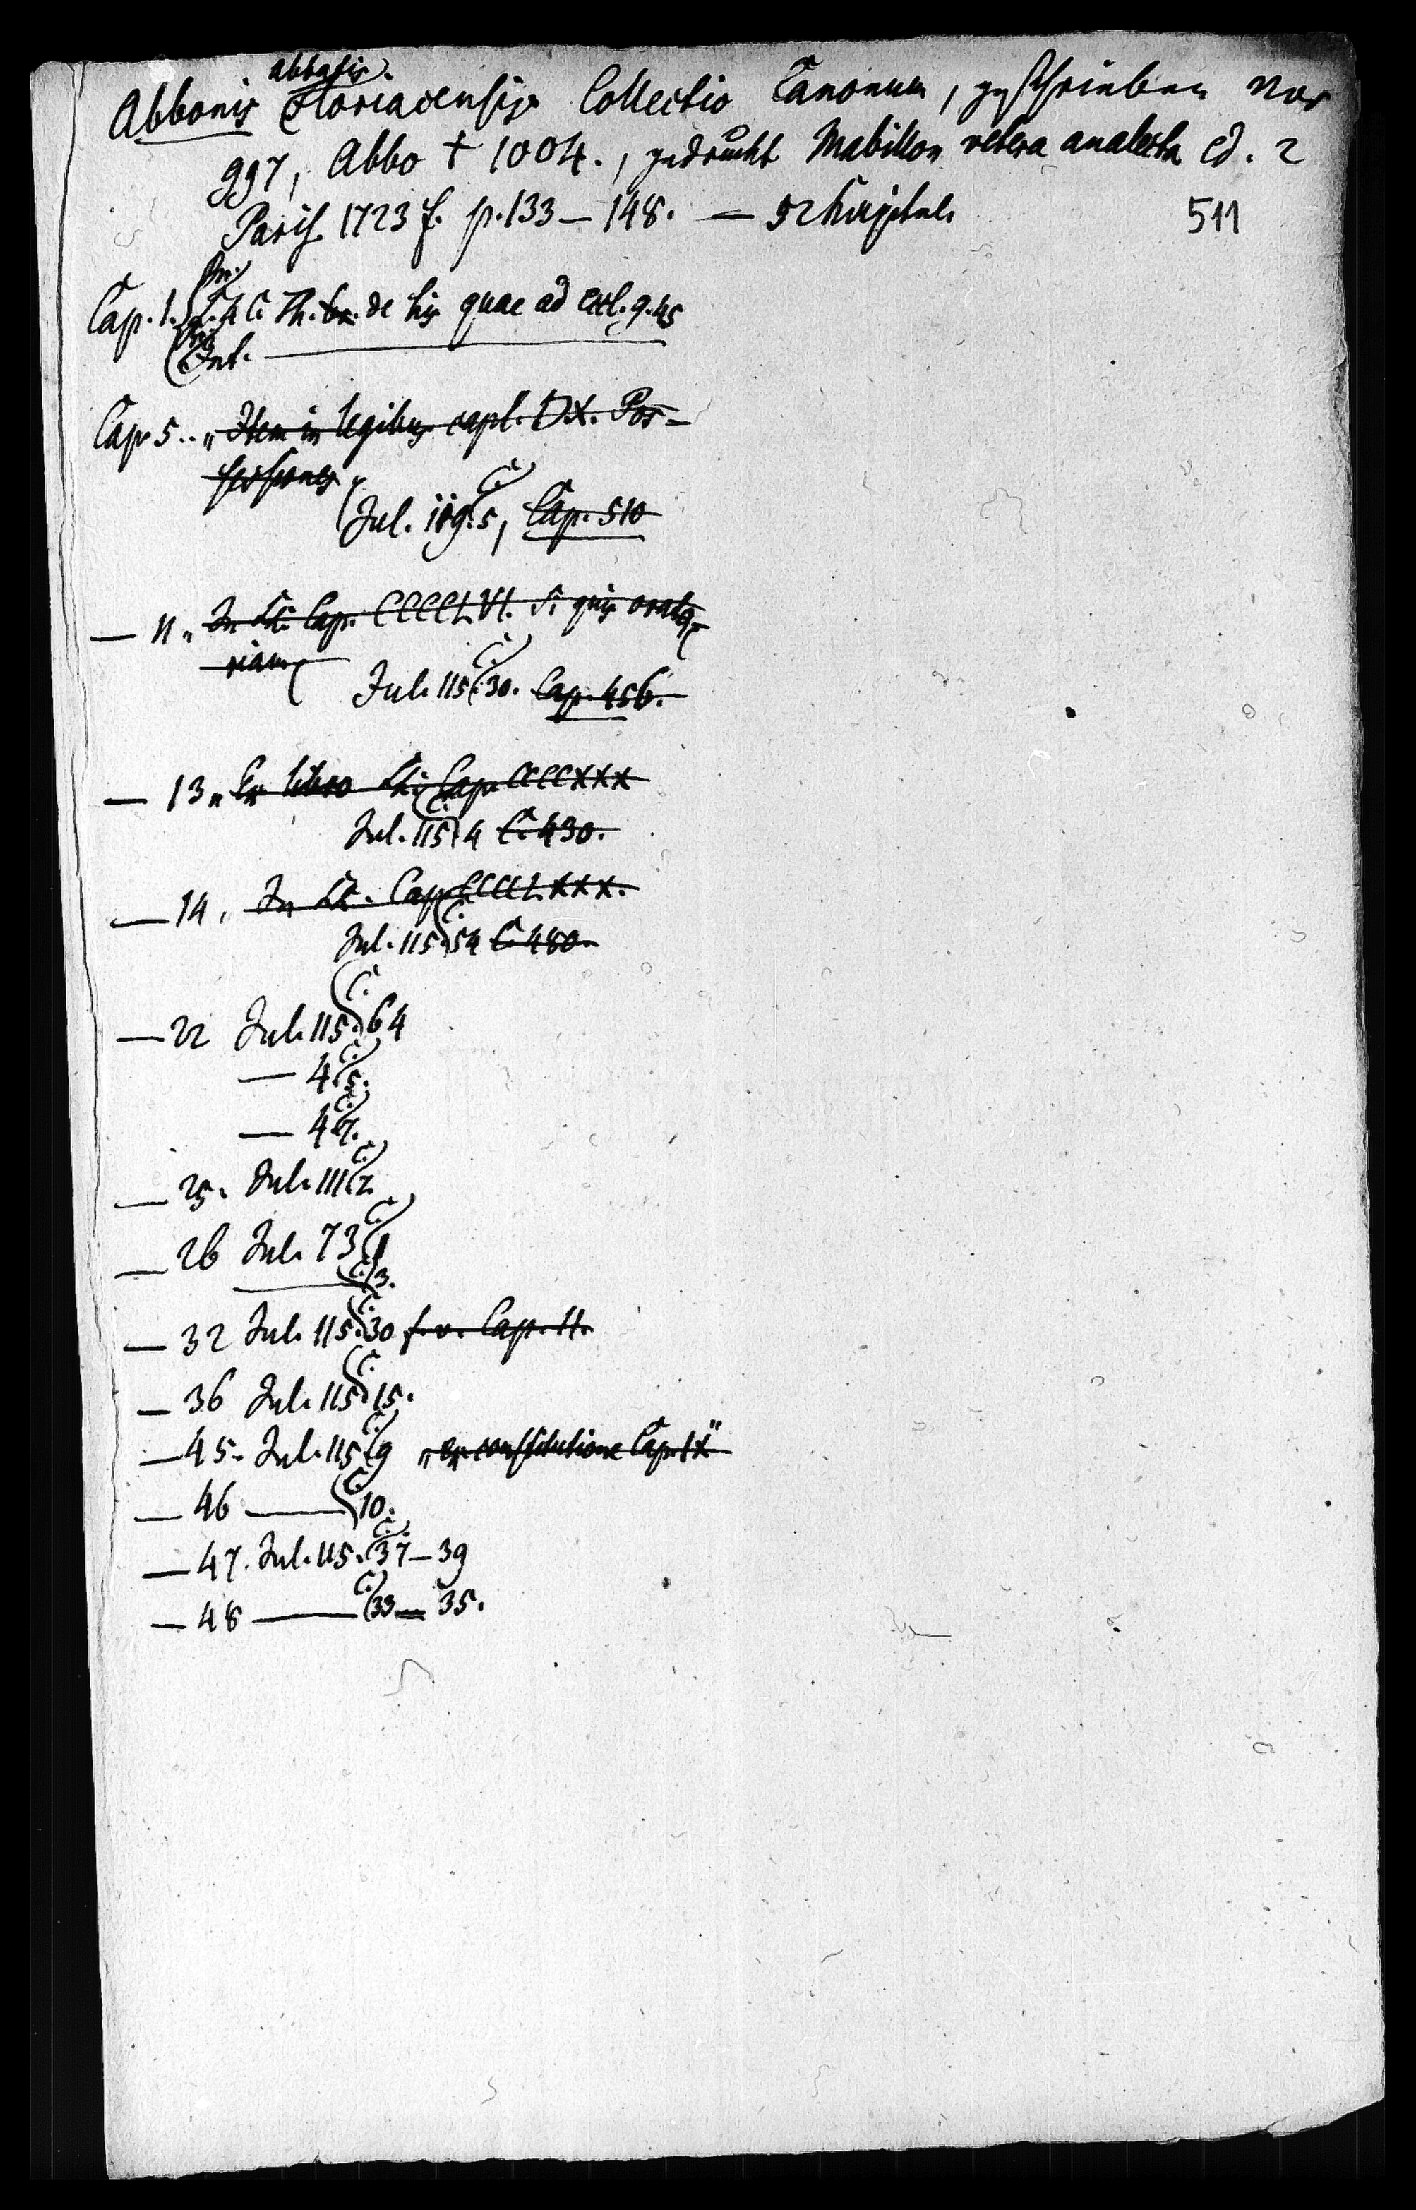 abbatis
Abbonis Floriacensis Collectio Canonum, geschrieben vor
997, Abbo † 1004., gedruckt Mabillon vetera analecta ed. 2
Paris 1723 f. p. 133 – 148. — 52 Kapitel.
511
Cap. 1. L. 4 C. Th. de his quae ad eccl. 9.45
Int.
Cap. 5. „Item in legibus capl. DX. Pos-
sessiones
Jul. 119. C. 5, Cap. 510
— 11. „In Lib. Cap. CCCCLVI. Si quis orato-
riam
Jul. 115. C. 30. Cap. 456.
— 13 „Ex libro Cap. CCCCXXX
Jul. 115 C. 4 C. 430.
— 14, In Cap. CCCCLXXX.
Jul. 115. C. 54 C. 480.
— 22 Jul. 115. C. 64
— 4. C. 5.
— 4. C. 7.
— 25. Jul. 111. C. 2
— 26 Jul. 73 C. 1
C. 3.
— 32 Jul. 115. C. 30 s. v. Cap. 11.
— 36 Jul. 115 C. 15.
— 45. Jul. 115 C. 9 „ex constitutione Cap. IX"
— 46 — C. 10.
— 47. Jul. 115. C. 37–39
— 48 — C. 33 – 35.